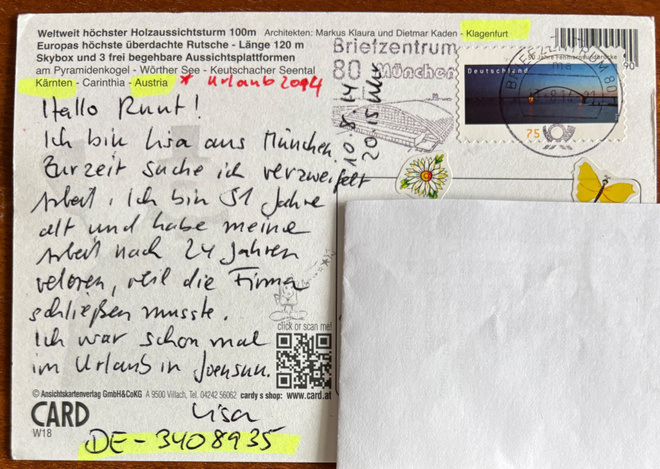 Weltweit höchster Holzaussichtsturm 100m Architekten: Markus Klaura und Dietmar Kaden - Klagenfurt
Europas höchste überdachte Rutsche - Länge 120 m
Skybox und 3 frei begehbare Aussichtsplattformen
am Pyramidenkogel - Wörther See - Keutschacher Seental
Kärnten - Carinthia - Austria * Urlaub 2014
Briefzentrum
80 München
10.8.14
20.15 Uhr
Deutschland
75
BRIEFZENTRUM 80
90
Hallo Ruut!
Ich bin Lisa aus München.
Zurzeit suche ich verzweifelt
Arbeit. Ich bin 51 Jahre
alt und habe meine
Arbeit nach 24 Jahren
veloren, weil die Firma
schließen musste.
Ich war schon mal
im Urlaub in Joensuu.
Lisa
DE-3408935
click or scan me!
© Ansichtskartenverlag GmbH&CoKG A 9500 Villach, Tel. 04242 56062 cardy s shop: www.card.at
CARD
W18